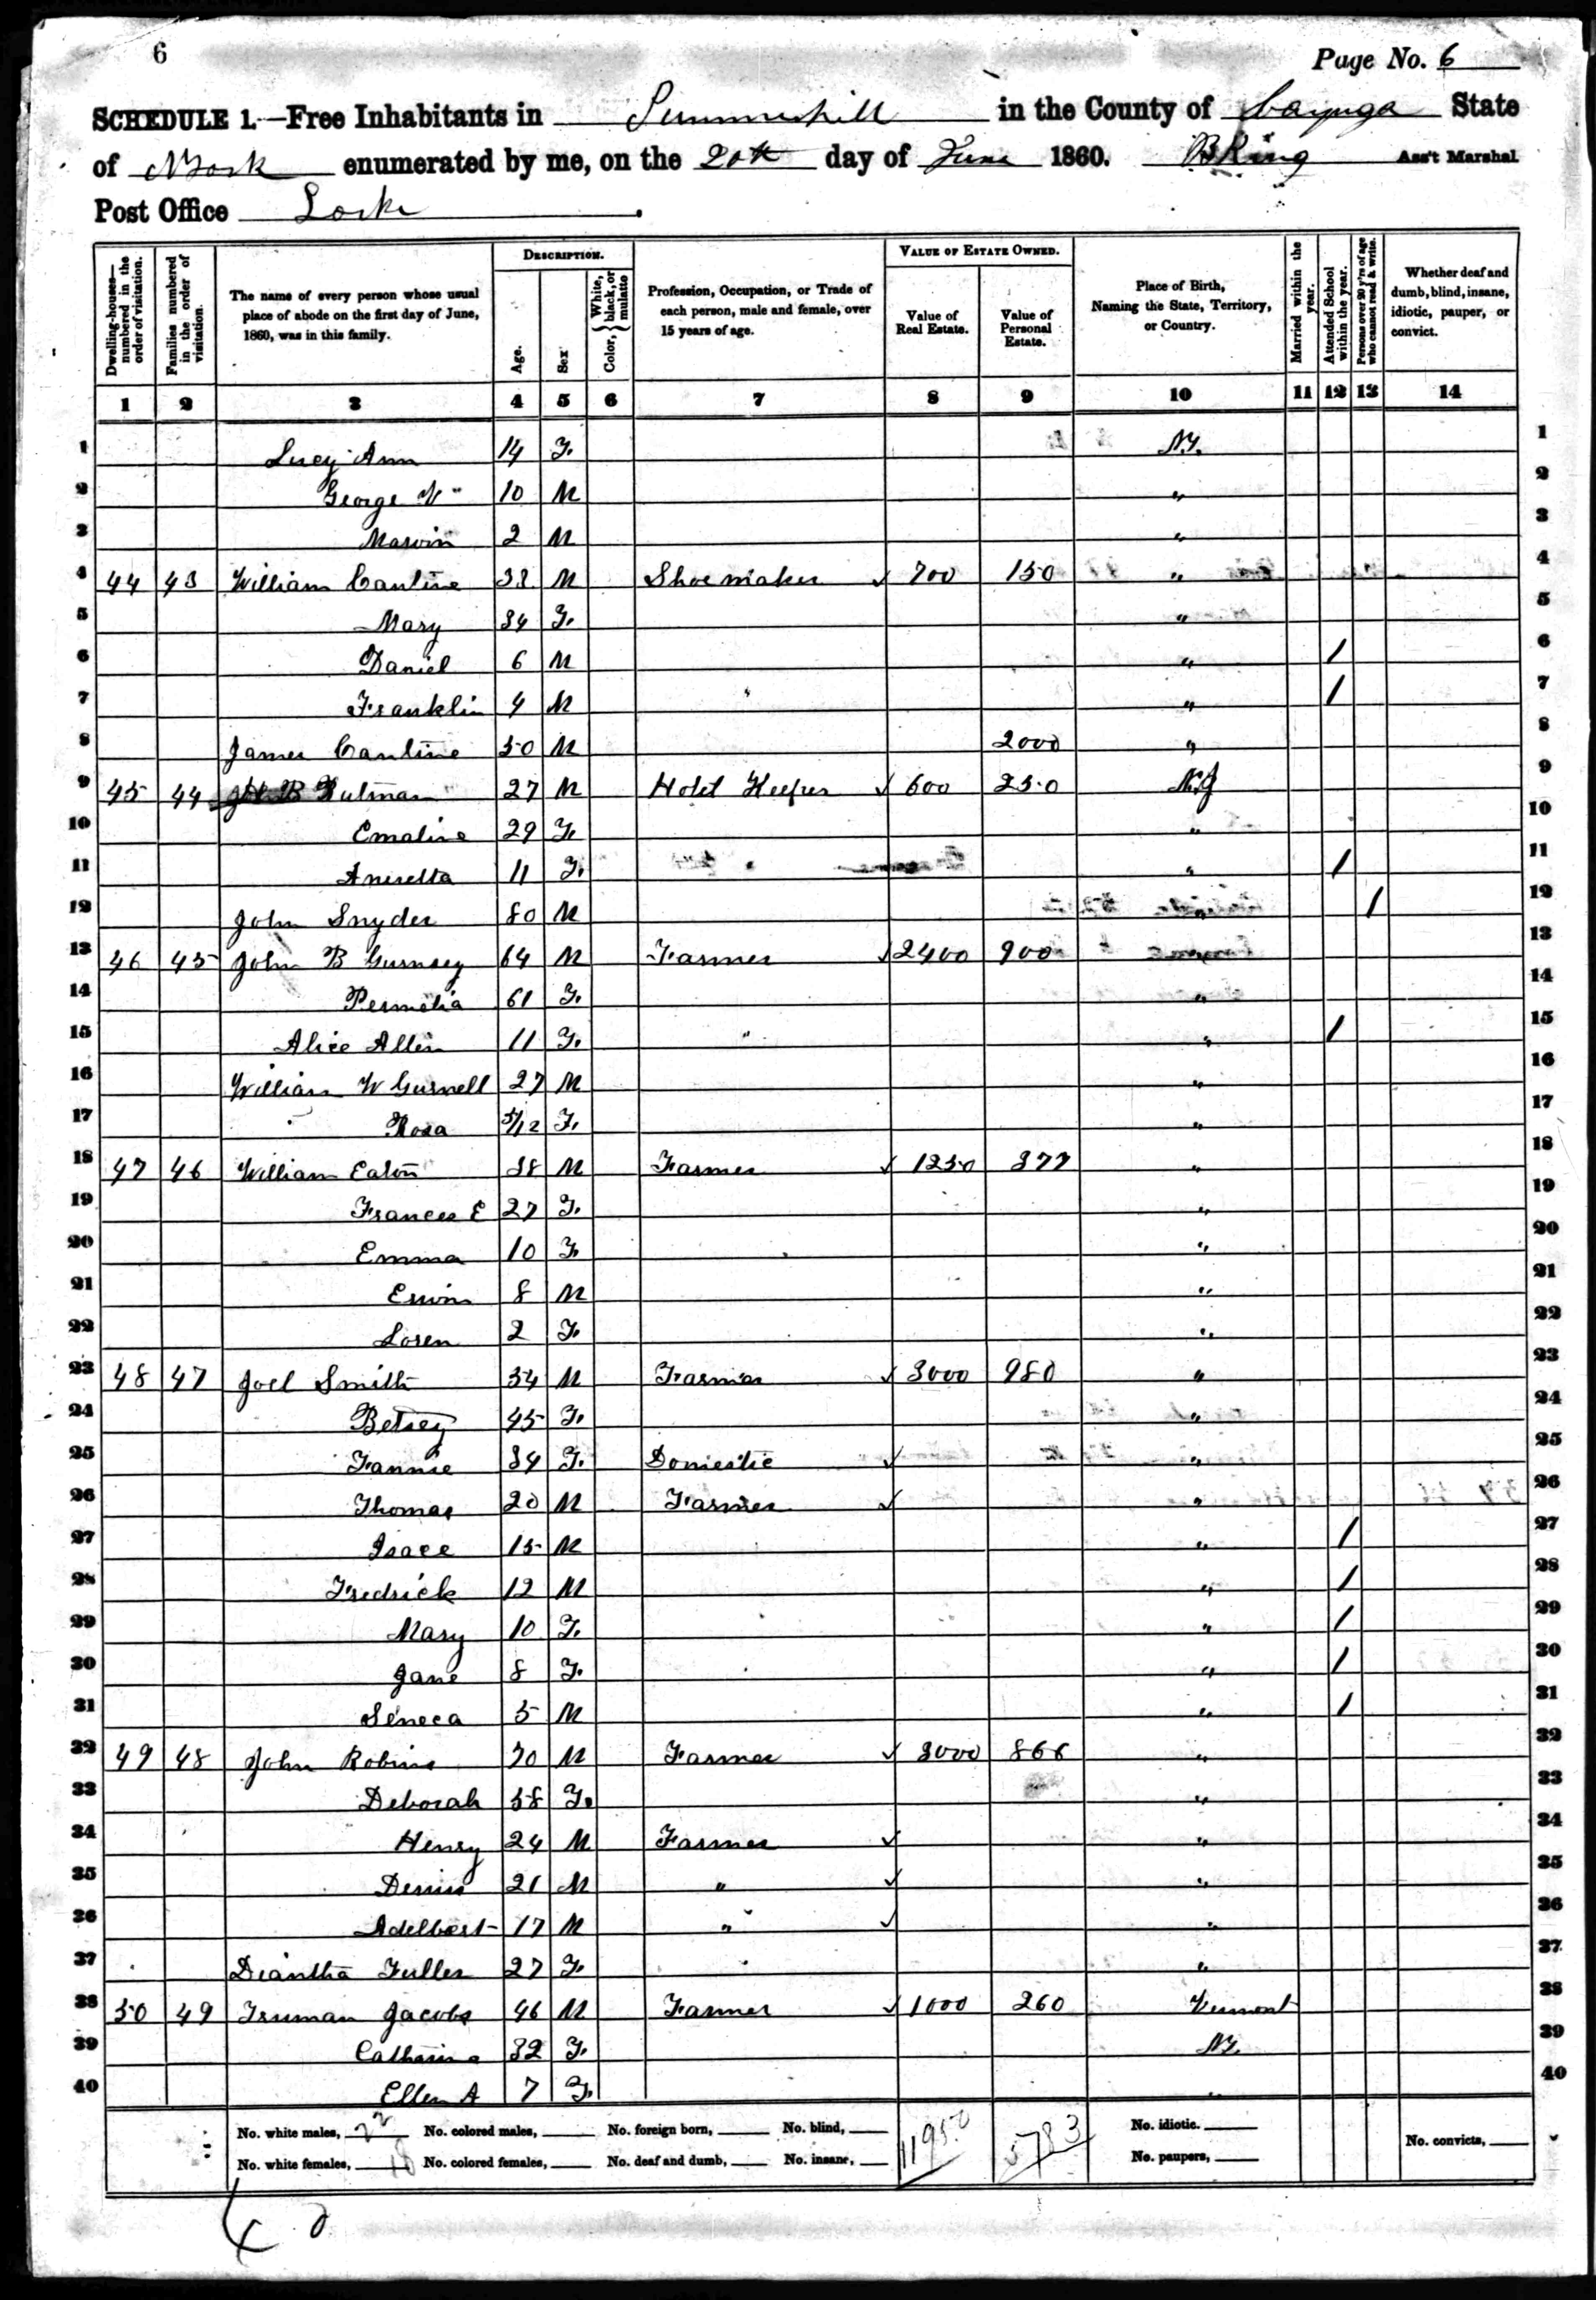 6
Page No. 6
SCHEDULE 1.—Free Inhabitants in Summerhill in the County of Cayuga State
of N York enumerated by me, on the 20th day of June 1860. B King Ass't Marshal
Post Office Locke.
DESCRIPTION. VALUE OF ESTATE OWNED.
Dwelling-houses—numbered in the order of visitation. Families numbered in the order of visitation. The name of every person whose usual place of abode on the first day of June, 1860, was in this family. Age. Sex Color, White, black, or mulatto Profession, Occupation, or Trade of each person, male and female, over 15 years of age. Value of Real Estate. Value of Personal Estate. Place of Birth, Naming the State, Territory, or Country. Married within the year. Attended School within the year. Persons over 20 y'rs of age who cannot read & write. Whether deaf and dumb, blind, insane, idiotic, pauper, or convict.
1 2 3 4 5 6 7 8 9 10 11 12 13 14
1 Lucy Ann 14 F. N.Y. 1
2 George W " 10 M " 2
3 Marvin 2 M " 3
4 44 43 William Cantine 38 M Shoemaker ✓ 700 150 " 4
5 Mary 34 F. " 5
6 Daniel 6 M " / 6
7 Franklin 4 M " / 7
8 James Cantine 50 M 2000 " 8
9 45 44 27 M Hotel Keeper ✓ 600 250 9
10 Emaline 29 F. " 10
11 11 F. " / 11
12 John Snyder 80 M " / 12
13 46 45 John B Gurnsey 64 M Farmer ✓ 2400 900 " 13
14 Permelia 61 F. " 14
15 Alice Allen 11 F. " / 15
16 William W Gurnell 27 M " 16
17 Rosa 5/12 F. " 17
18 47 46 William Eaton 38 M Farmer ✓ 1250 377 " 18
19 Frances E 27 F. " 19
20 Emma 10 F. " 20
21 Erwin 8 M " 21
22 Loren 2 F. " 22
23 48 47 Joel Smith 54 M Farmer ✓ 3000 980 " 23
24 Betsey 45 F. " 24
25 Fannie 34 F. Domestic ✓ " 25
26 Thomas 20 M Farmer ✓ " 26
27 Isace 15 M " / 27
28 Fredrick 12 M " / 28
29 Mary 10 F. " / 29
30 Jane 8 F. " / 30
31 Seneca 5 M " / 31
32 49 48 John Robins 70 M Farmer ✓ 3000 866 " 32
33 Deborah 58 F. " 33
34 Henry 24 M Farmer ✓ " 34
35 Dennis 21 M " ✓ " 35
36 Adelbert 17 M " ✓ " 36
37 Diantha Fuller 27 F. " 37
38 50 49 Truman Jacobs 46 M Farmer ✓ 1000 260 Vermont 38
39 Catharine 32 F. N.Y. 39
40 Ellen A 7 F. " 40
No. white males, 22 No. colored males, No. foreign born, No. blind, 11950 5783 No. idiotic. No. convicts,
No. white females, 18 No. colored females, No. deaf and dumb, No. insane, No. paupers,